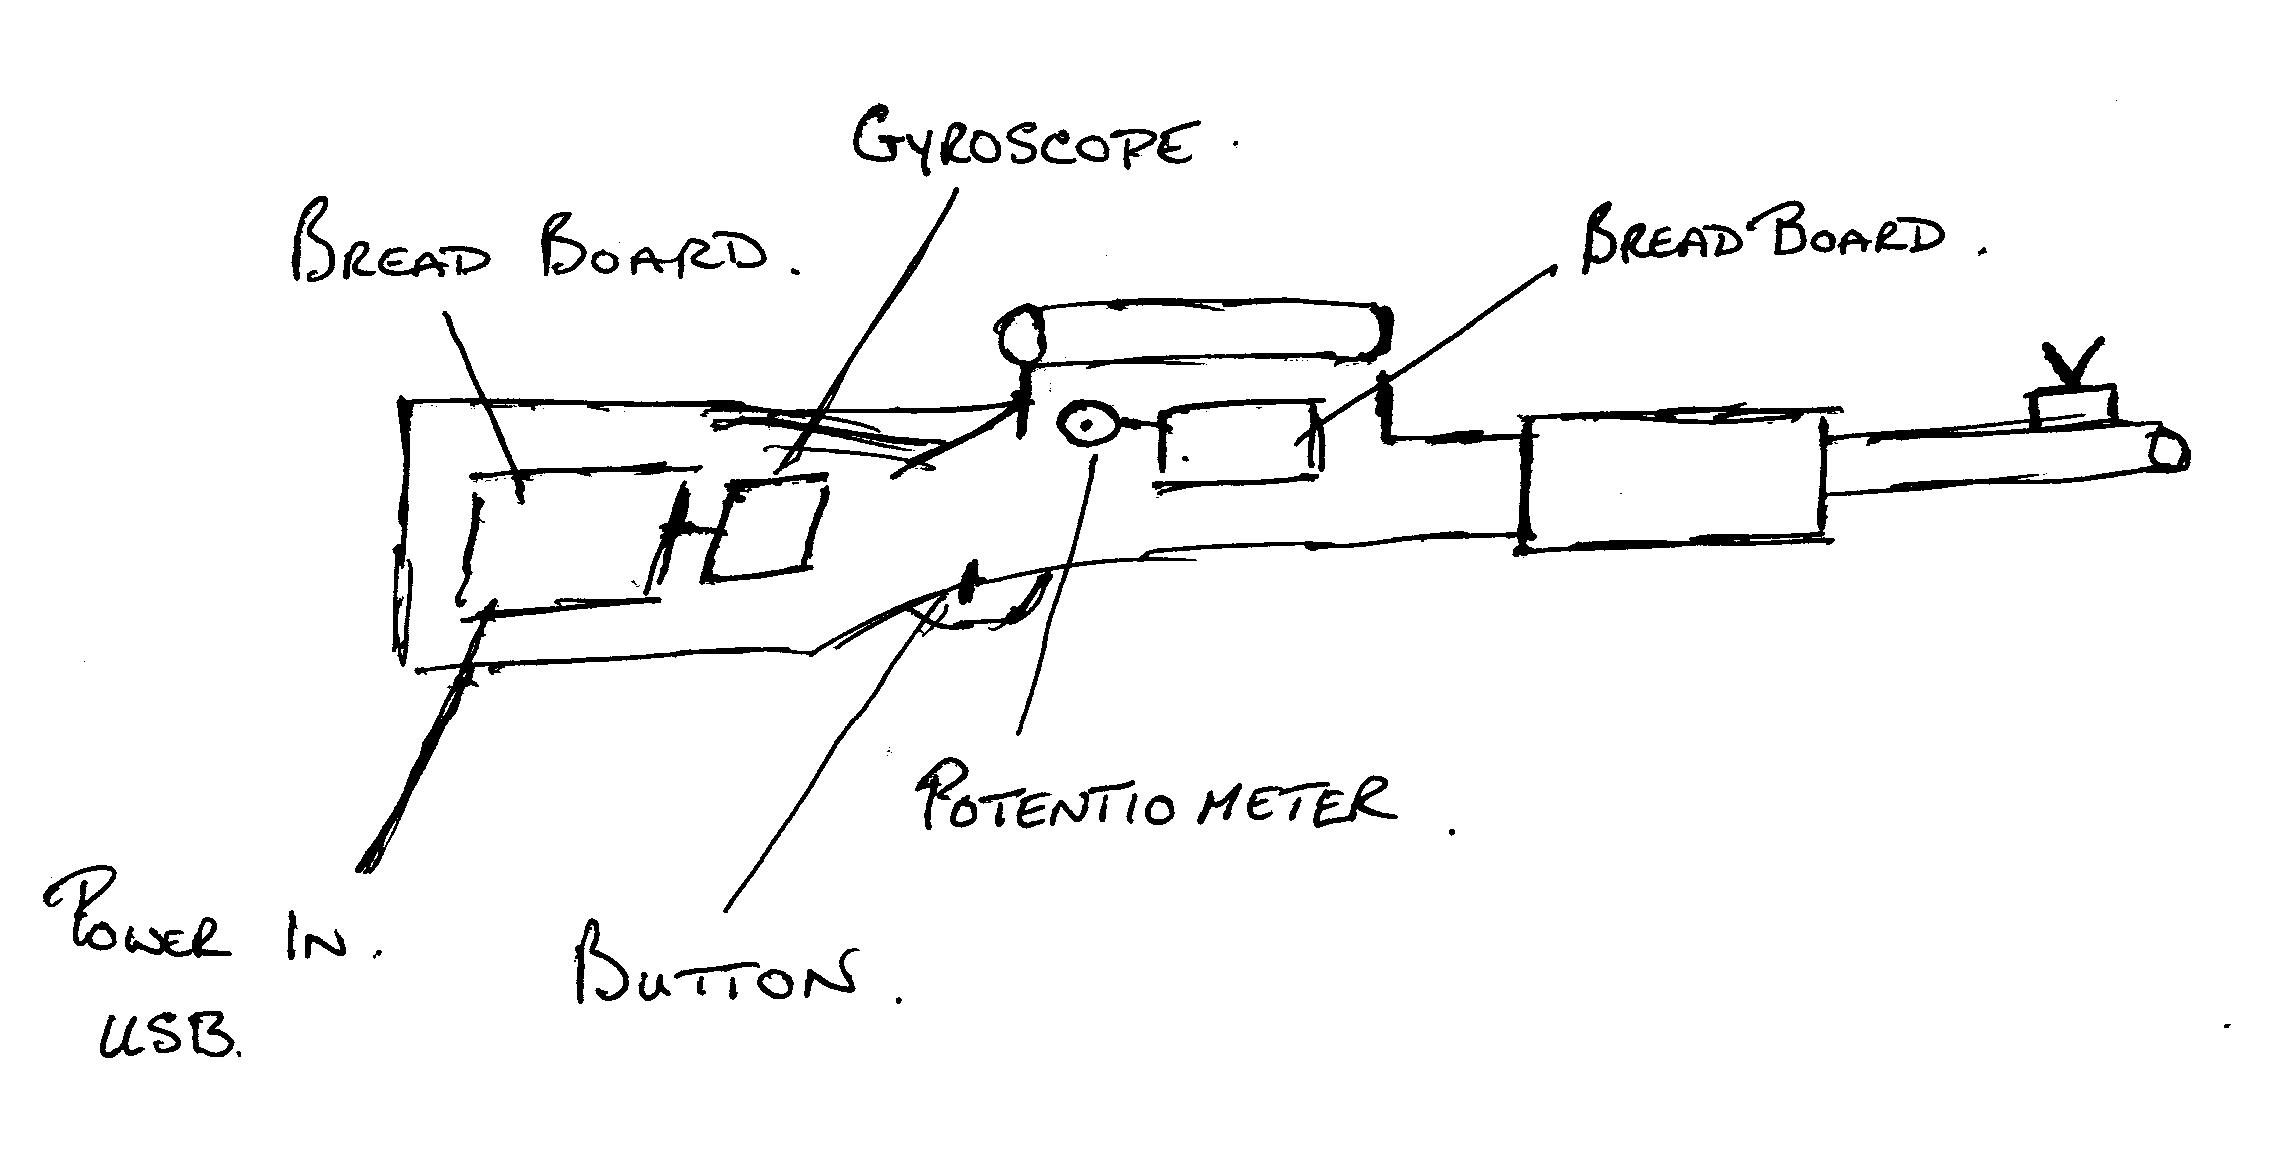 GYROSCOPE.
BREAD BOARD.
BREAD BOARD.
POTENTIOMETER.
POWER IN.
USB.
BUTTON.